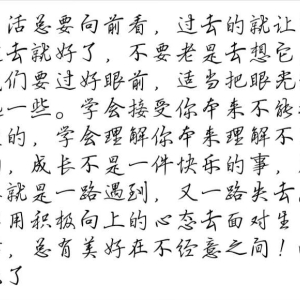 活总要向前看，过去的就让
去就好了，不要老是去想它
们要过好眼前，适当把眼光
一些。学会接受你本来不能
的，学会理解你本来理解不
，成长不是一件快乐的事，
就是一路遇到，又一路失去
用积极向上的心态去面对生
，总有美好在不经意之间！
了